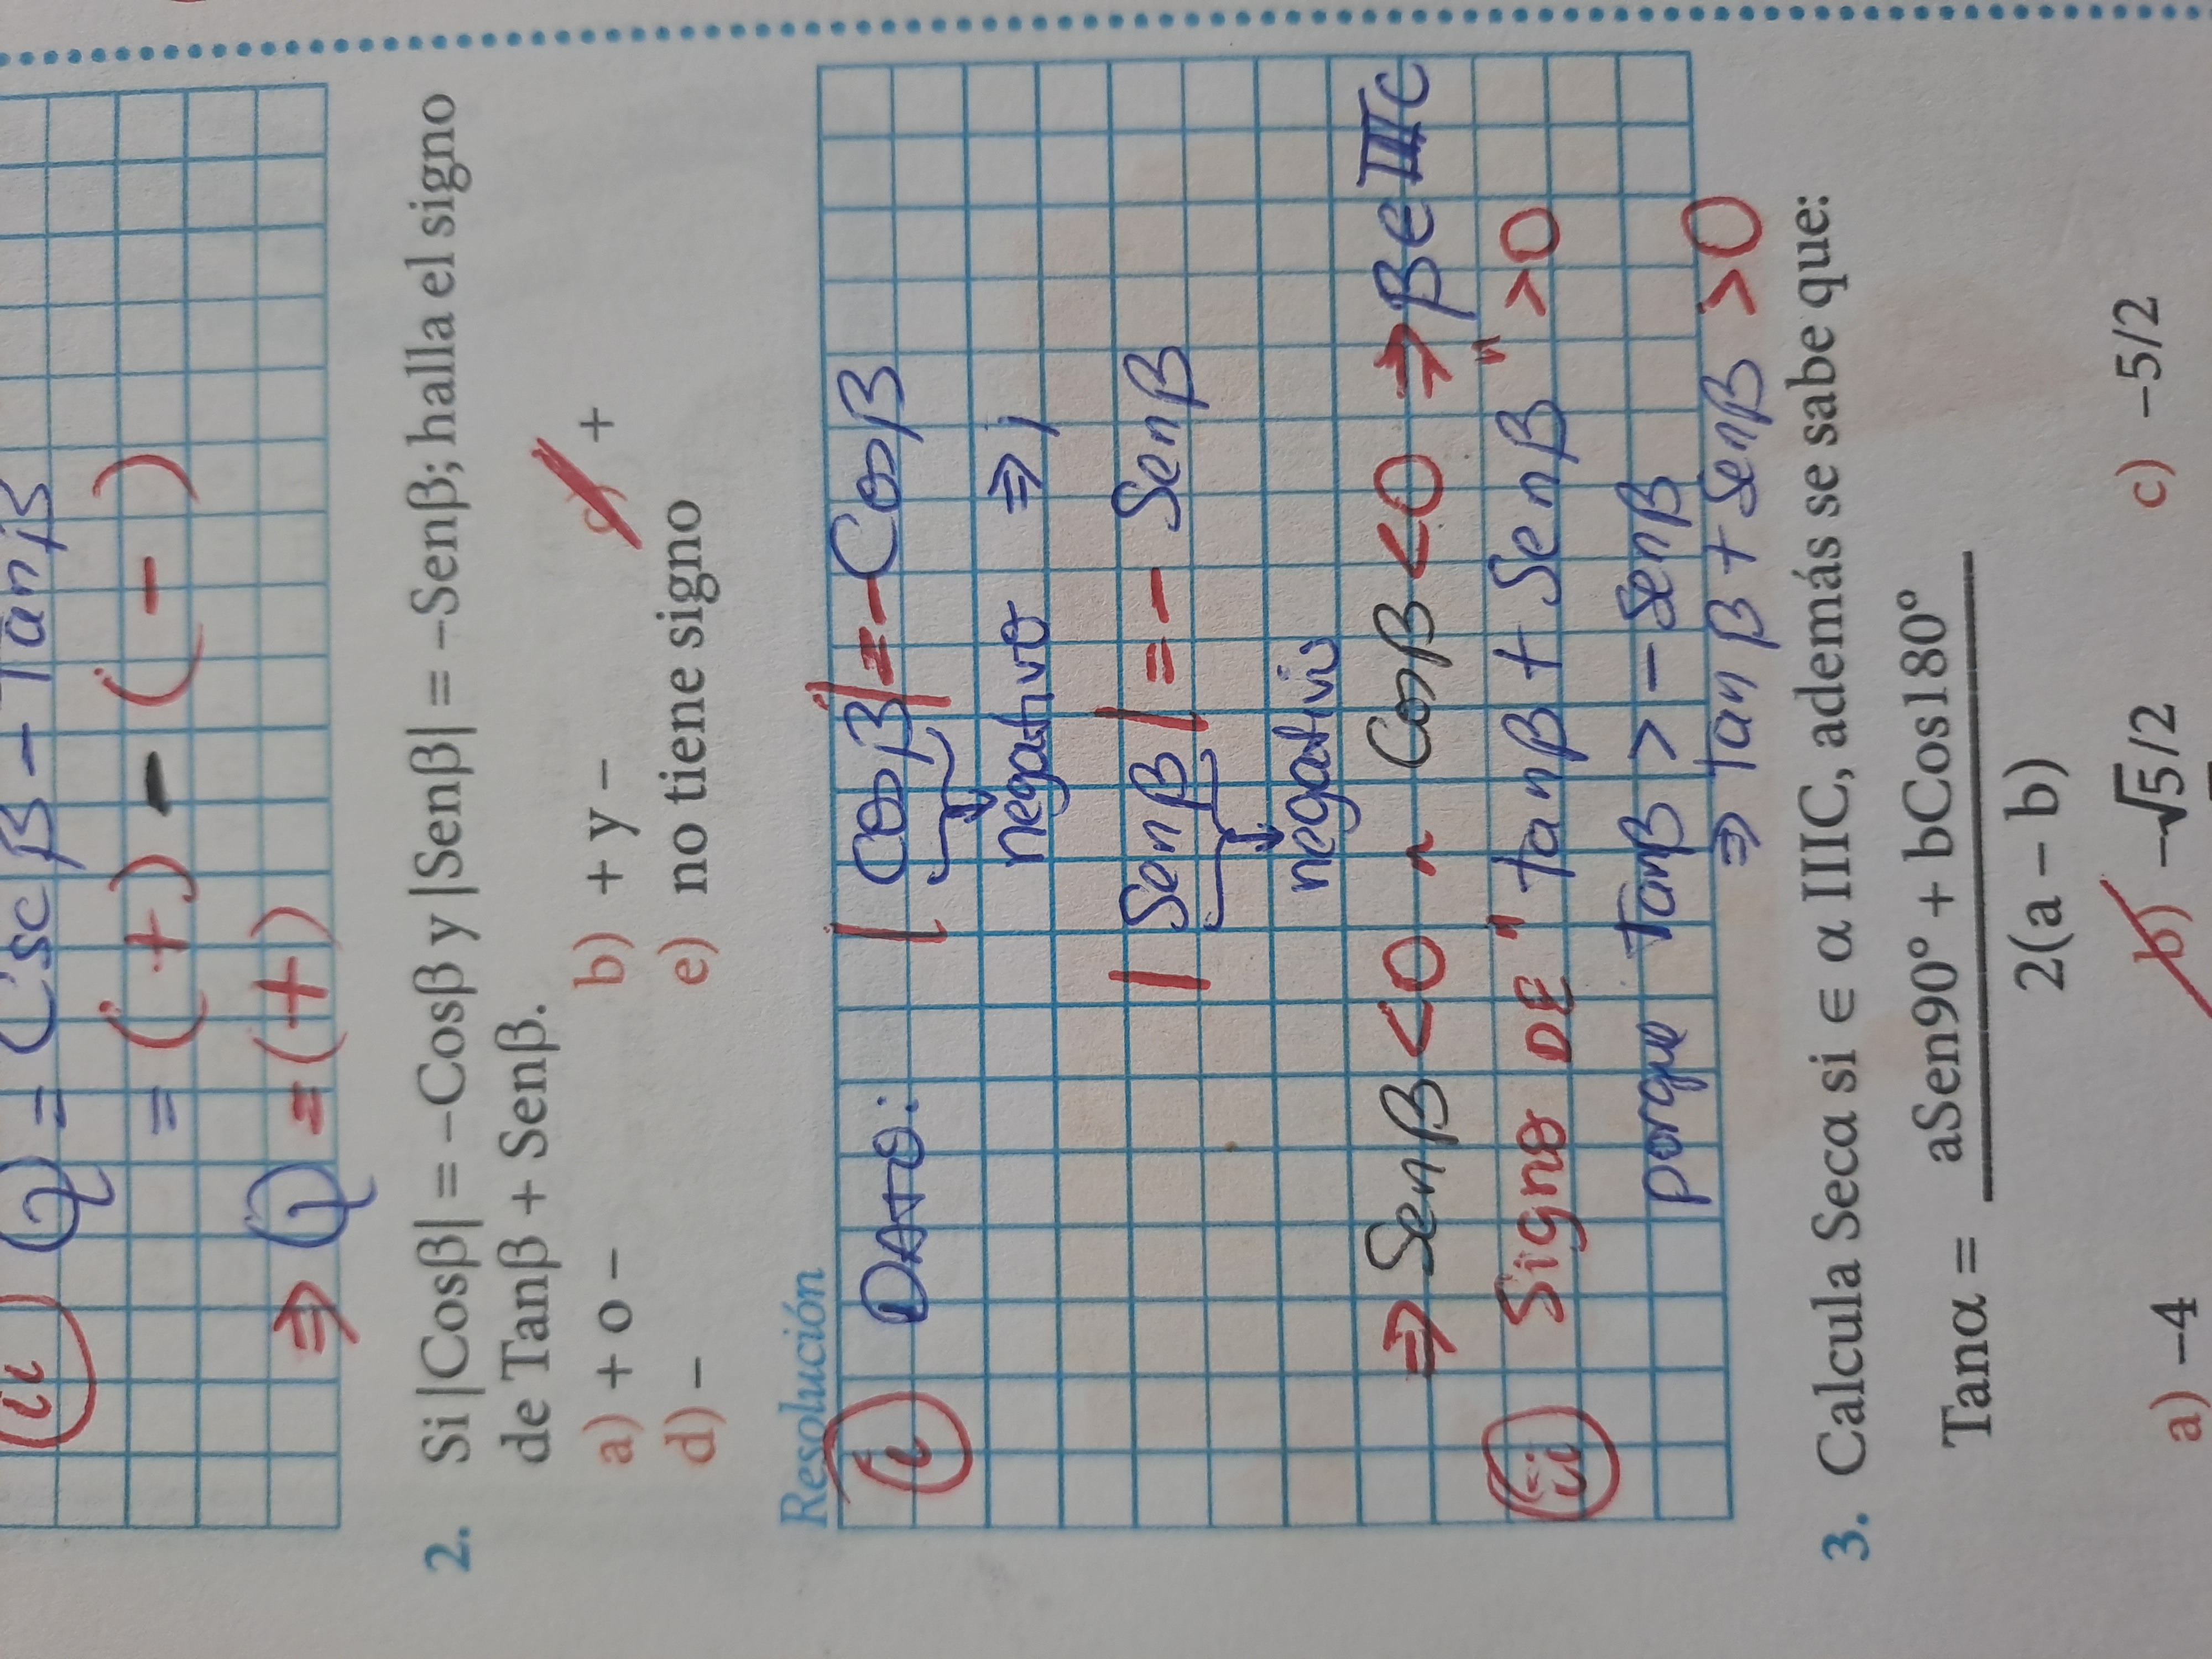 ii Q = Csc β - Tan β
= (+) - (-)
⇒ Q = (+)
2. Si |Cosβ| = –Cosβ y |Senβ| = –Senβ; halla el signo
de Tanβ + Senβ.
a) + o – b) + y – c) +
d) – e) no tiene signo
Resolución
i DATO: | Cos β | = - Cos β
negativo ⇒ ;
| Sen β | = - Sen β
negativo
⇒ Sen β < 0 ∧ Cos β < 0 ⇒ β ∈ III C
ii Signo DE " tan β + Sen β " > 0
porque Tan β > - Sen β
⇒ tan β + Sen β > 0
3. Calcula Secα si ∈ α IIIC, además se sabe que:
aSen90° + bCos180°
Tanα =
2(a – b)
a) –4 b) –√5/2 c) –5/2